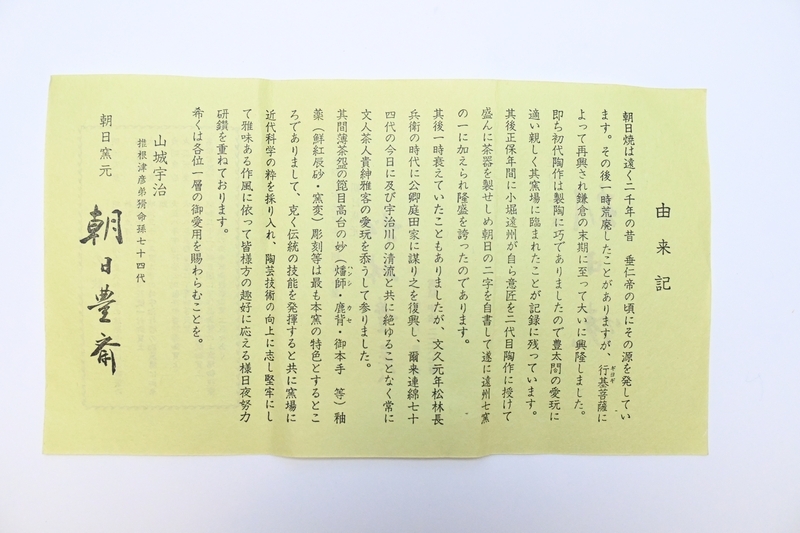 由来記
朝日焼は遠く二千年の昔　垂仁帝の頃にその源を発してい
ます。その後一時荒廃したことがありますが、行基菩薩に
ギヨギ
よって再興され鎌倉の末期に至って大いに興隆しました。
即ち初代陶作は製陶に巧でありましたので豊太閤の愛玩に
適い親しく其窯場に臨まれたことが記録に残っています。
其後正保年間に小堀遠州が自ら意匠を二代目陶作に授けて
盛んに茶器を製せしめ朝日の二字を自書して遂に遠州七窯
の一に加えられ隆盛を誇ったのであります。
其後一時衰えていたこともありましたが、文久元年松林長
兵衛の時代に公卿庭田家に謀り之を復興し、爾来連綿七十
四代の今日に及び宇治川の清流と共に絶ゆることなく常に
文人茶人貴紳雅客の愛玩を添うして参りました。
其間薄茶盌の箆目高台の妙（燔師・鹿背・御本手　等）釉
ハンシ　カセ
薬（鮮紅辰砂・窯変）彫刻等は最も本窯の特色とするとこ
ろでありまして、克く伝統の技能を発揮すると共に窯場に
近代科学の粋を採り入れ、陶芸技術の向上に志し堅牢にし
て雅味ある作風に依って皆様方の趣好に応える様日夜努力
研鑽を重ねております。
希くは各位一層の御愛用を賜わらむことを。
山城宇治
椎根津彦弟猾命孫七十四代
朝日窯元　朝日豊斎